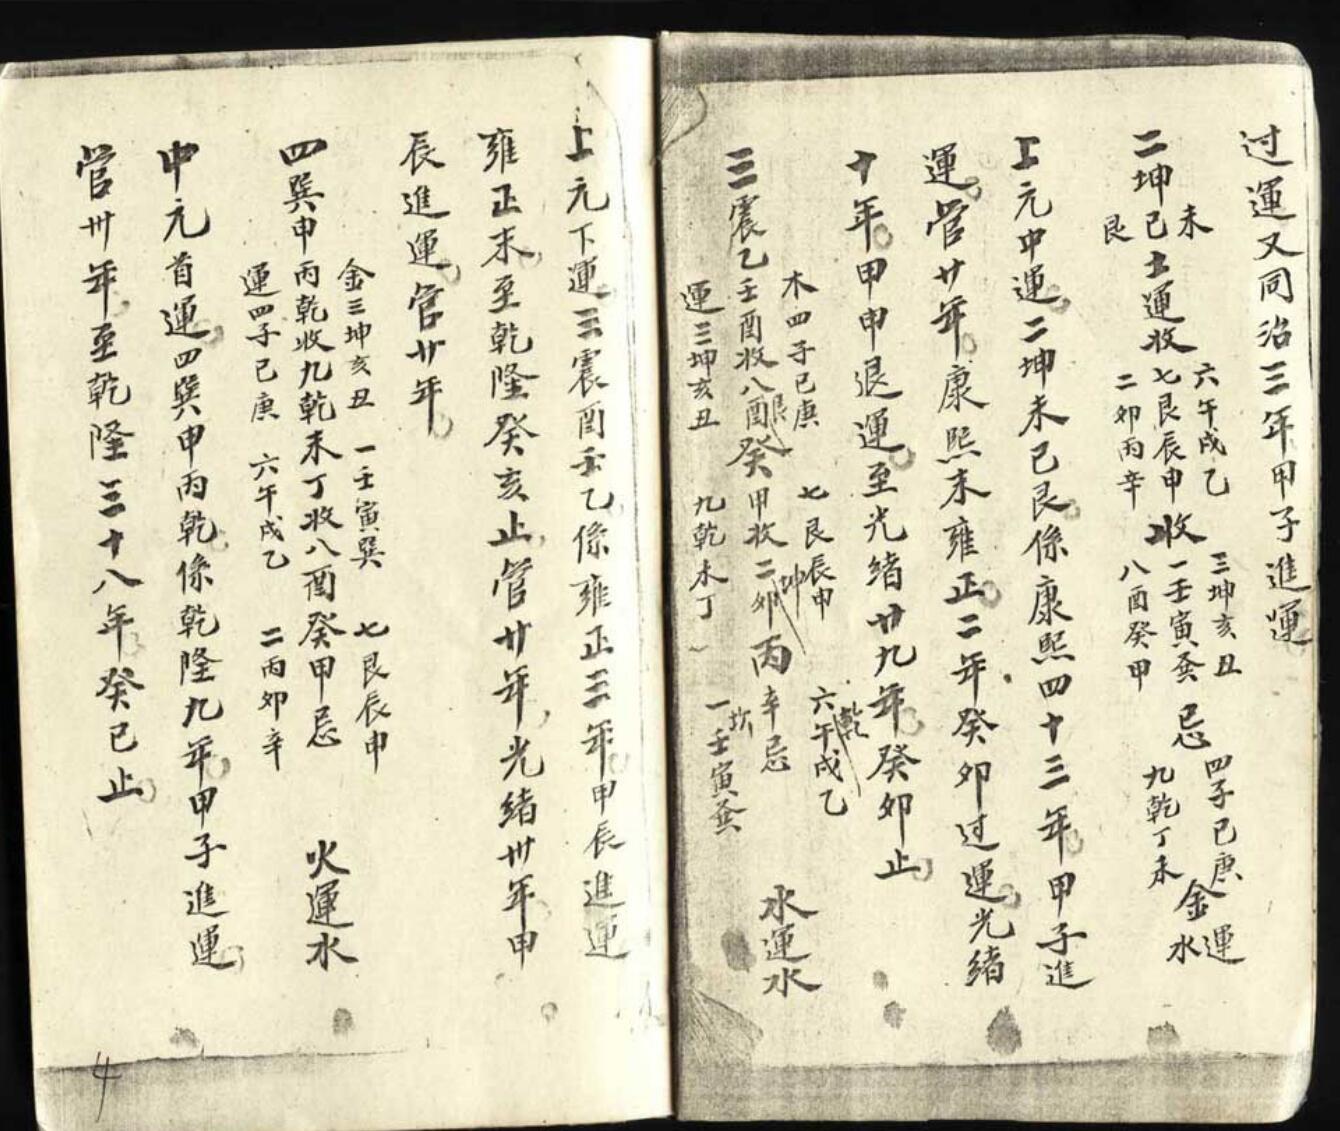 过運又同治三年甲子進運
未
二坤己土運收
艮
六午戌乙
七艮辰申
二卯丙辛
收
三坤亥丑
一壬寅巽
八酉癸甲
忌
四子巳庚
九乾丁未
金運
水
上元中運二坤未己艮係康熙四十三年甲子進
運管廿年康熙末雍正二年癸卯过運光緒
十年甲申退運至光緒廿九年癸卯止
木四子巳庚 七艮辰申 乾六午戌乙
三震乙壬酉收八酉艮癸甲收二卯坤丙辛忌
運三坤亥丑 九乾未丁 一坎壬寅巽
水運水
上元下運三震酉壬乙係雍正三年甲辰進運
雍正末至乾隆癸亥止管廿年光緒卅年甲
辰進運管廿年
金三坤亥丑 一壬寅巽 七艮辰申
四巽申丙乾收九乾未丁收八酉癸甲忌
運四子巳庚 六午戌乙 二丙卯辛
火運水
中元首運四巽申丙乾係乾隆九年甲子進運
管卅年至乾隆三十八年癸巳止
4